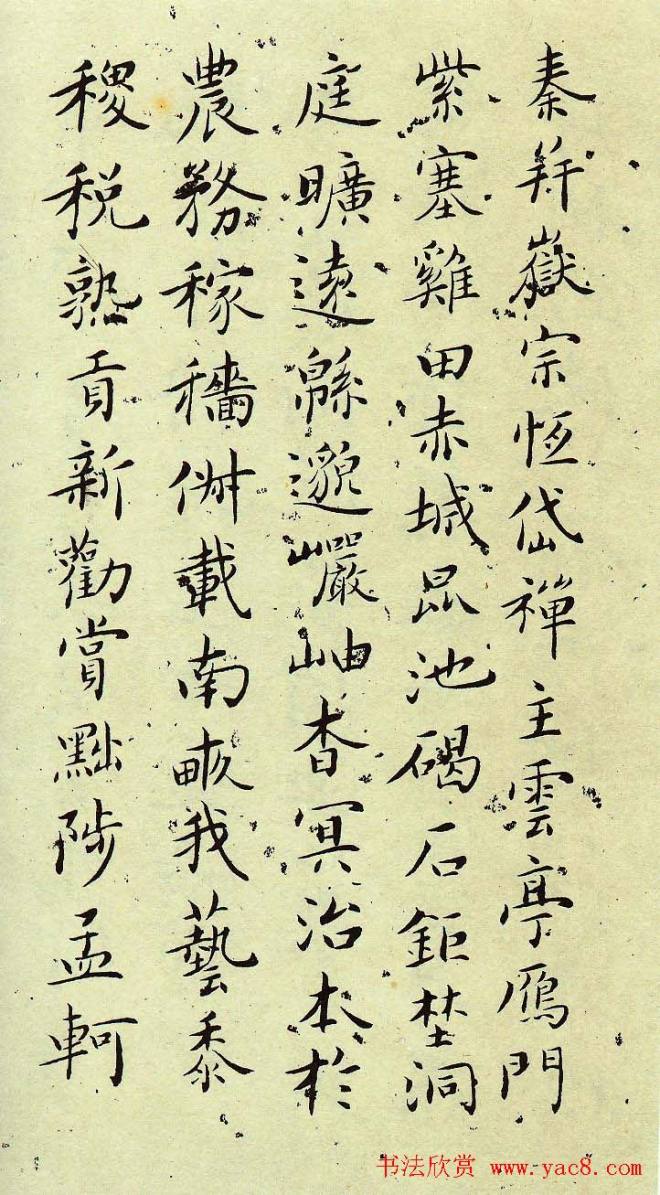 秦并嶽宗恆岱禪主雲亭雁門
紫塞雞田赤城昆池碣石鉅埜洞
庭曠遠緜邈巖岫杳冥治本於
農務稼穡俶載南畝我藝黍
稷稅熟貢新勸賞黜陟孟軻
书法欣赏 www.yac8.com